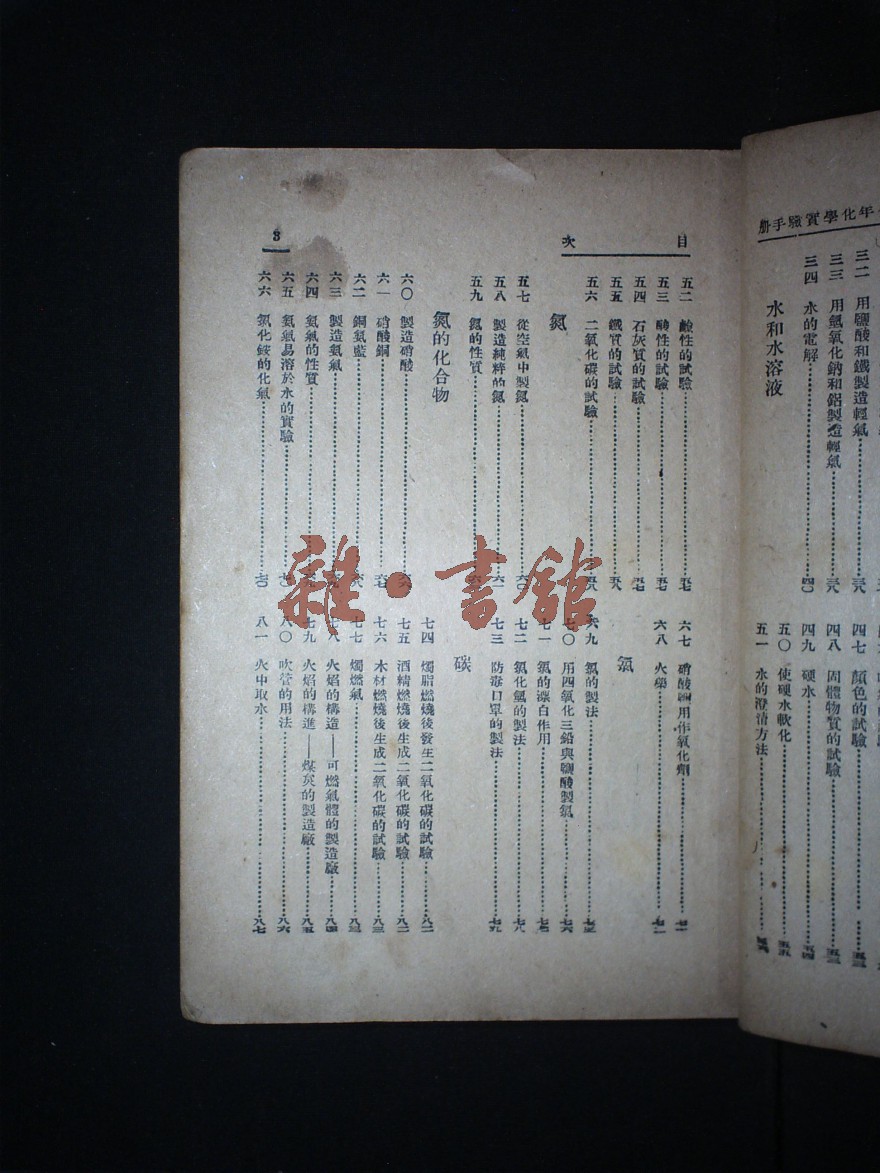 年化學實驗手册
三二 用鹽酸和鐵製造輕氣
三三 用氫氧化鈉和鋁製造輕氣
三四 水的電解……四〇
水和水溶液
四七 顏色的試驗……五三
四八 固體物質的試驗……五三
四九 硬水……五四
五〇 使硬水軟化……五五
五一 水的澄清方法
目次
3
五二 鹼性的試驗……五七
五三 酸性的試驗……五七
五四 石灰質的試驗……五七
五五 鐵質的試驗……五八
五六 二氧化碳的試驗……五八
氮
五七 從空氣中製氮……六〇
五八 製造純粹的氮……六一
五九 氮的性質
氮的化合物
六〇 製造硝酸……六六
六一 硝酸銅……六七
六二 銅氨藍……六八
六三 製造氨氣
六四 氨氣的性質
六五 氨氣易溶於水的實驗……七〇
六六 氯化銨的化氣……七〇
六七 硝酸鉀用作氧化劑……七一
六八 火藥……七二
氯
六九 氯的製法
七〇 用四氧化三鉛與鹽酸製氯……七六
七一 氯的漂白作用……七七
七二 氯化氫的製法……七八
七三 防毒口罩的製法……七九
碳
七四 燭脂燃燒後發生二氧化碳的試驗……八二
七五 酒精燃燒後生成二氧化碳的試驗……八二
七六 木材燃燒後生成二氧化碳的試驗……八三
七七 燭燃氣……八三
七八 火焰的構造——可燃氣體的製造廠……八四
七九 火焰的構進——煤炱的製造廠……八五
八〇 吹管的用法……八六
八一 火中取水……八七
雜·書館